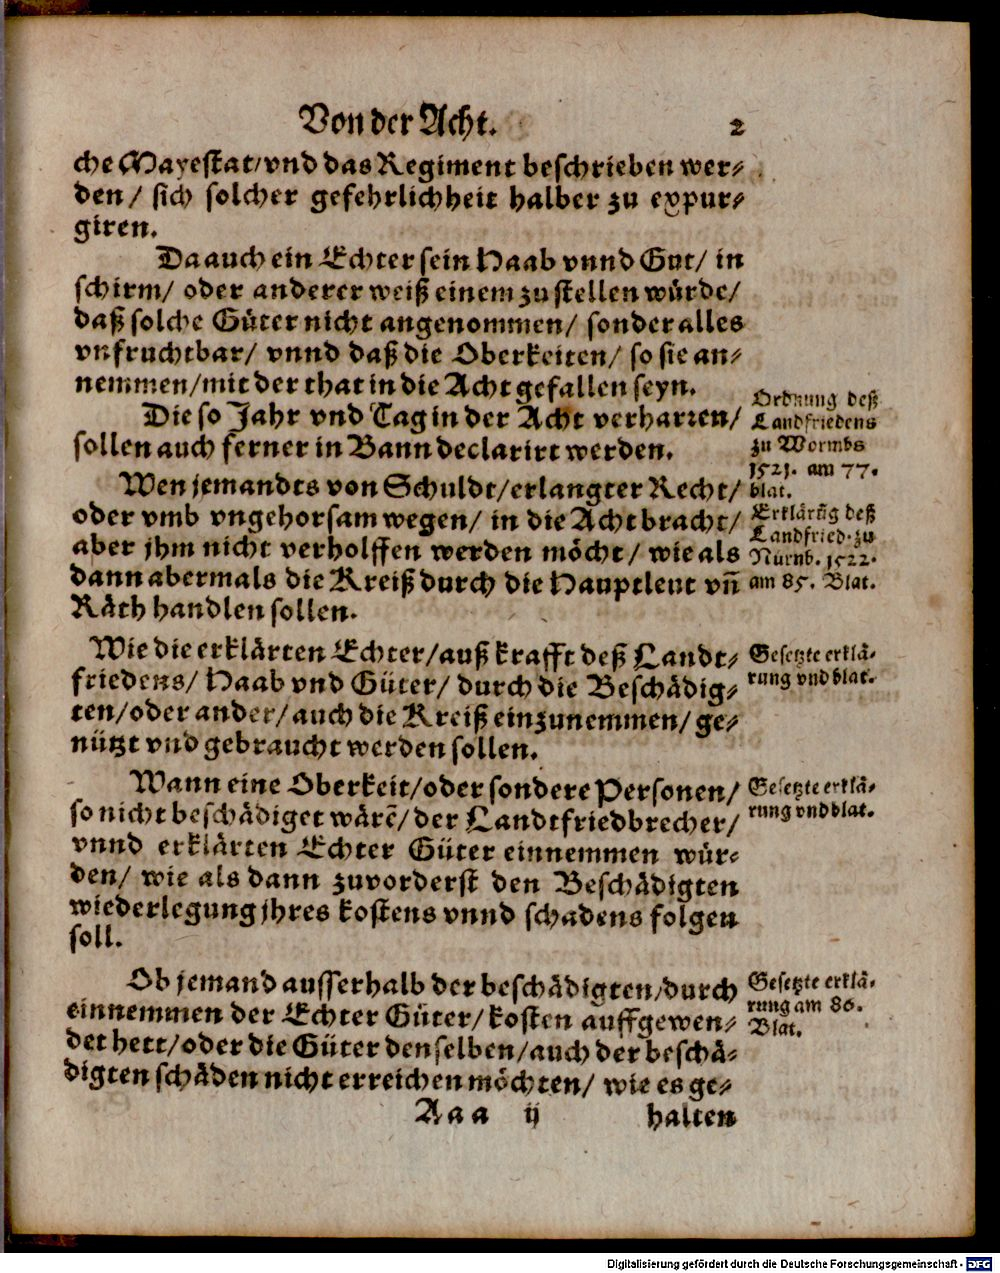 Von der Acht. 2
che Mayestat/vnd das Regiment beschrieben wer⸗
den/ sich solcher gefehrlichheit halber zu expur⸗
giren.
Da auch ein Echter sein Haab vnnd Gut/ in
schirm/ oder anderer weiß einem zu stellen würde/
daß solche Güter nicht angenommen/ sonder alles
vnfruchtbar/ vnnd daß die Oberkeiten/ so sie an⸗
nemmen/mit der that in die Acht gefallen seyn.
Die so Jahr vnd Tag in der Acht verharren/
sollen auch ferner in Bann declarirt werden.
Ordnung deß
Landfriedens
zu Wormbs
1521. am 77.
blat.
Wen jemandts von Schuldt/erlangter Recht/
oder vmb vngehorsam wegen/ in die Acht bracht/
aber jhm nicht verholffen werden möcht/ wie als
dann abermals die Kreiß durch die Hauptleut vn̄
Räth handlen sollen.
Erklärūg deß
Landfried. zu
Nürnb. 1522.
am 85. Blat.
Wie die erklärten Echter/auß krafft deß Landt⸗
friedens/ Haab vnd Güter/ durch die Beschädig⸗
ten/oder ander/ auch die Kreiß einzunemmen/ ge⸗
nützt vnd gebraucht werden sollen.
Gesetzte erklä⸗
rung vnd blat.
Wann eine Oberkeit/oder sondere Personen/
so nicht beschädiget wärē/ der Landtfriedbrecher/
vnnd erklärten Echter Güter einnemmen wür⸗
den/ wie als dann zuvorderst den Beschädigten
wiederlegung jhres kostens vnnd schadens folgen
soll.
Gesetzte erklä⸗
rung vnd blat.
Ob jemand ausserhalb der beschädigten/durch
einnemmen der Echter Güter/ kosten auffgewen⸗
det hett/oder die Güter denselben/auch der beschä⸗
digten schäden nicht erreichen möchten/ wie es ge⸗
Gesetzte erklä⸗
rung am 86.
Blat.
Aaa ij halten
Digitalisierung gefördert durch die Deutsche Forschungsgemeinschaft - DFG